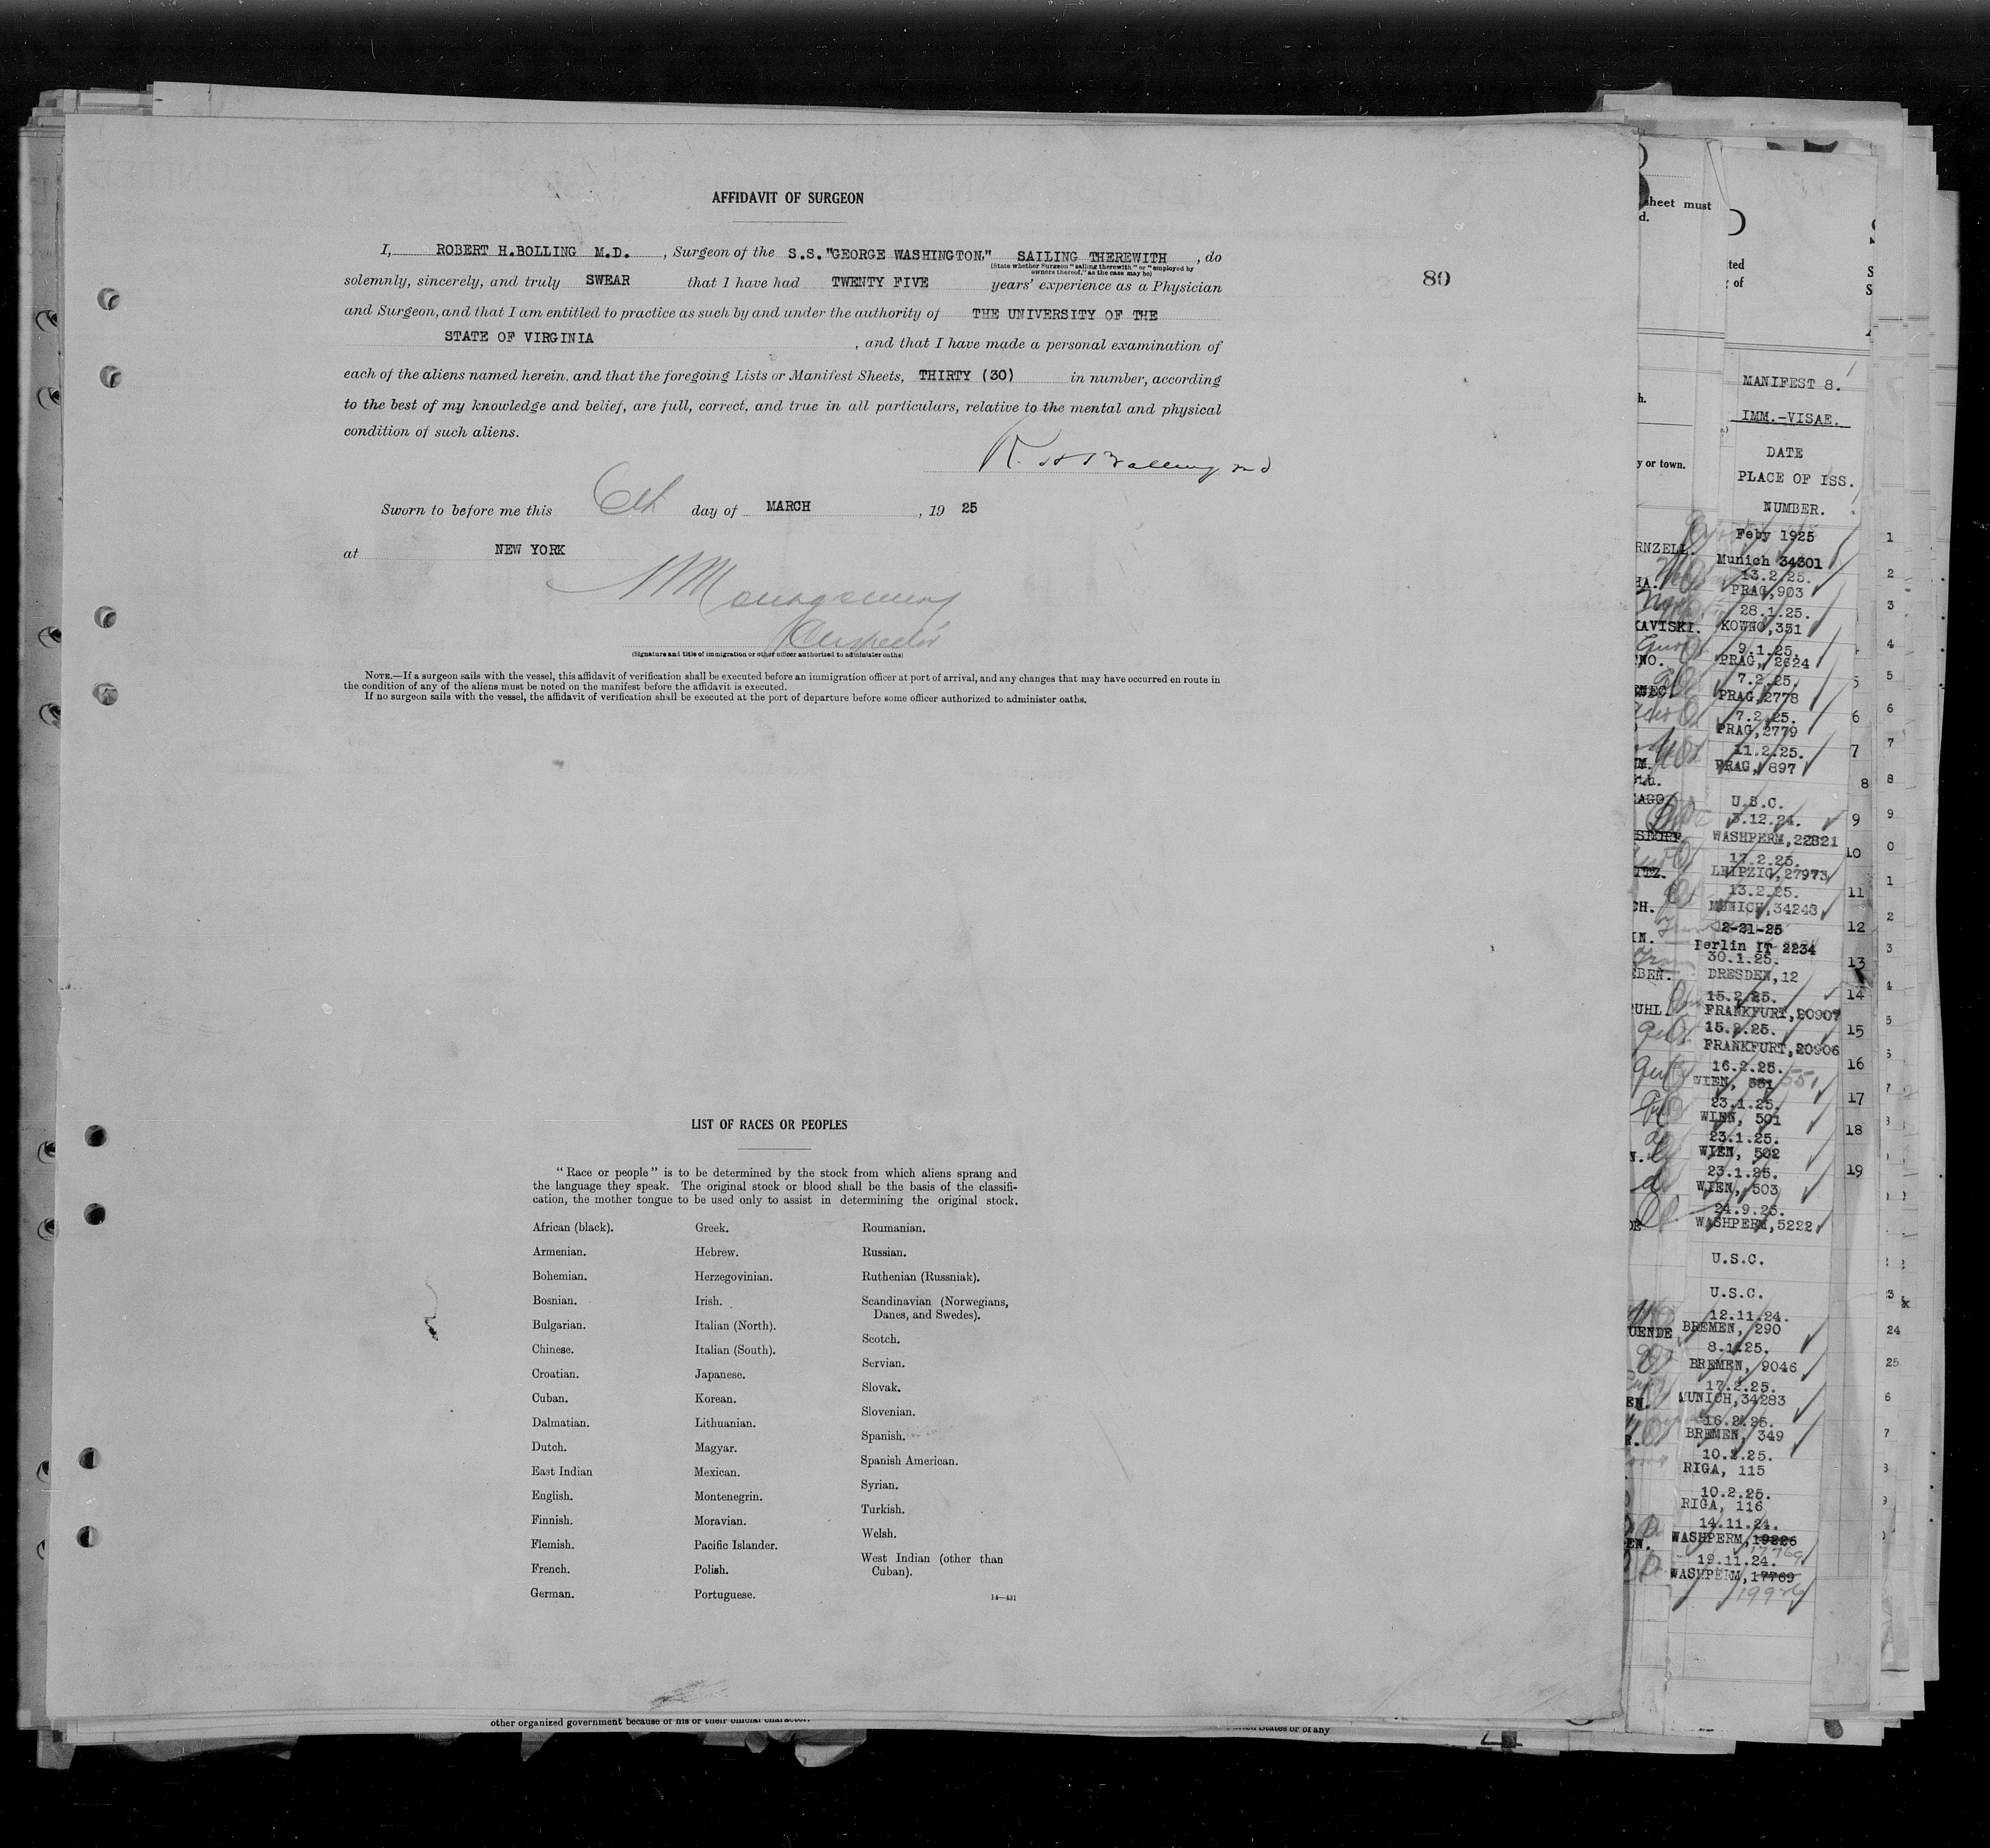 AFFIDAVIT OF SURGEON
I, ROBERT H.BOLLING M.D. , Surgeon of the S.S."GEORGE WASHINGTON," SAILING THEREWITH , do
(State whether Surgeon "sailing therewith" or "employed by
owners thereof," as the case may be)
solemnly, sincerely, and truly SWEAR that I have had TWENTY FIVE years' experience as a Physician
80
and Surgeon, and that I am entitled to practice as such by and under the authority of THE UNIVERSITY OF THE
STATE OF VIRGINIA , and that I have made a personal examination of
each of the aliens named herein, and that the foregoing Lists or Manifest Sheets, THIRTY (30) in number, according
to the best of my knowledge and belief, are full, correct, and true in all particulars, relative to the mental and physical
condition of such aliens.
R. H Bolling md
Sworn to before me this 6th day of MARCH , 19 25
at NEW YORK
Montgomery
Inspector
(Signature and title of immigration or other officer authorized to administer oaths)
NOTE.—If a surgeon sails with the vessel, this affidavit of verification shall be executed before an immigration officer at port of arrival, and any changes that may have occurred en route in
the condition of any of the aliens must be noted on the manifest before the affidavit is executed.
If no surgeon sails with the vessel, the affidavit of verification shall be executed at the port of departure before some officer authorized to administer oaths.
LIST OF RACES OR PEOPLES
"Race or people" is to be determined by the stock from which aliens sprang and
the language they speak. The original stock or blood shall be the basis of the classifi-
cation, the mother tongue to be used only to assist in determining the original stock.
African (black).
Armenian.
Bohemian.
Bosnian.
Bulgarian.
Chinese.
Croatian.
Cuban.
Dalmatian.
Dutch.
East Indian
English.
Finnish.
Flemish.
French.
German.
Greek.
Hebrew.
Herzegovinian.
Irish.
Italian (North).
Italian (South).
Japanese.
Korean.
Lithuanian.
Magyar.
Mexican.
Montenegrin.
Moravian.
Pacific Islander.
Polish.
Portuguese.
Roumanian.
Russian.
Ruthenian (Russniak).
Scandinavian (Norwegians,
Danes, and Swedes).
Scotch.
Servian.
Slovak.
Slovenian.
Spanish.
Spanish American.
Syrian.
Turkish.
Welsh.
West Indian (other than
Cuban).
14—431
other organized government because of his or their official character.
sheet must
y or town.
MANIFEST 8.
IMM.-VISAE.
DATE
PLACE OF ISS.
NUMBER.
Feby 1925
Munich 34301
13.2.25.
PRAG,903
28.1.25.
KOWNO,351
9.1.25.
PRAG, 2624
7.2.25.
PRAG,2778
7.2.25.
PRAG,2779
11.2.25.
PRAG, 897
U.S.C.
3.12.24.
WASHPERM,22821
17.2.25.
LEIPZIG,27973
13.2.25.
MUNICH,34243
2-21-25
Berlin IT 2234
30.1.25.
DRESDEN,12
15.2.25.
FRANKFURT,20907
15.2.25.
FRANKFURT,20906
16.2.25.
WIEN, 551
23.1.25.
WIEN, 501
23.1.25.
WIEN, 502
23.1.25.
WIEN, 503
24.9.25.
WASHPERM,5222
U.S.C.
U.S.C.
12.11.24.
BREMEN, 290
8.1.25.
BREMEN, 9046
17.2.25.
MUNICH,34283
16.2.25.
BREMEN, 349
10.2.25.
RIGA, 115
10.2.25.
RIGA, 116
14.11.24.
WASHPERM,19226
17769
19.11.24.
WASHPERM,17769